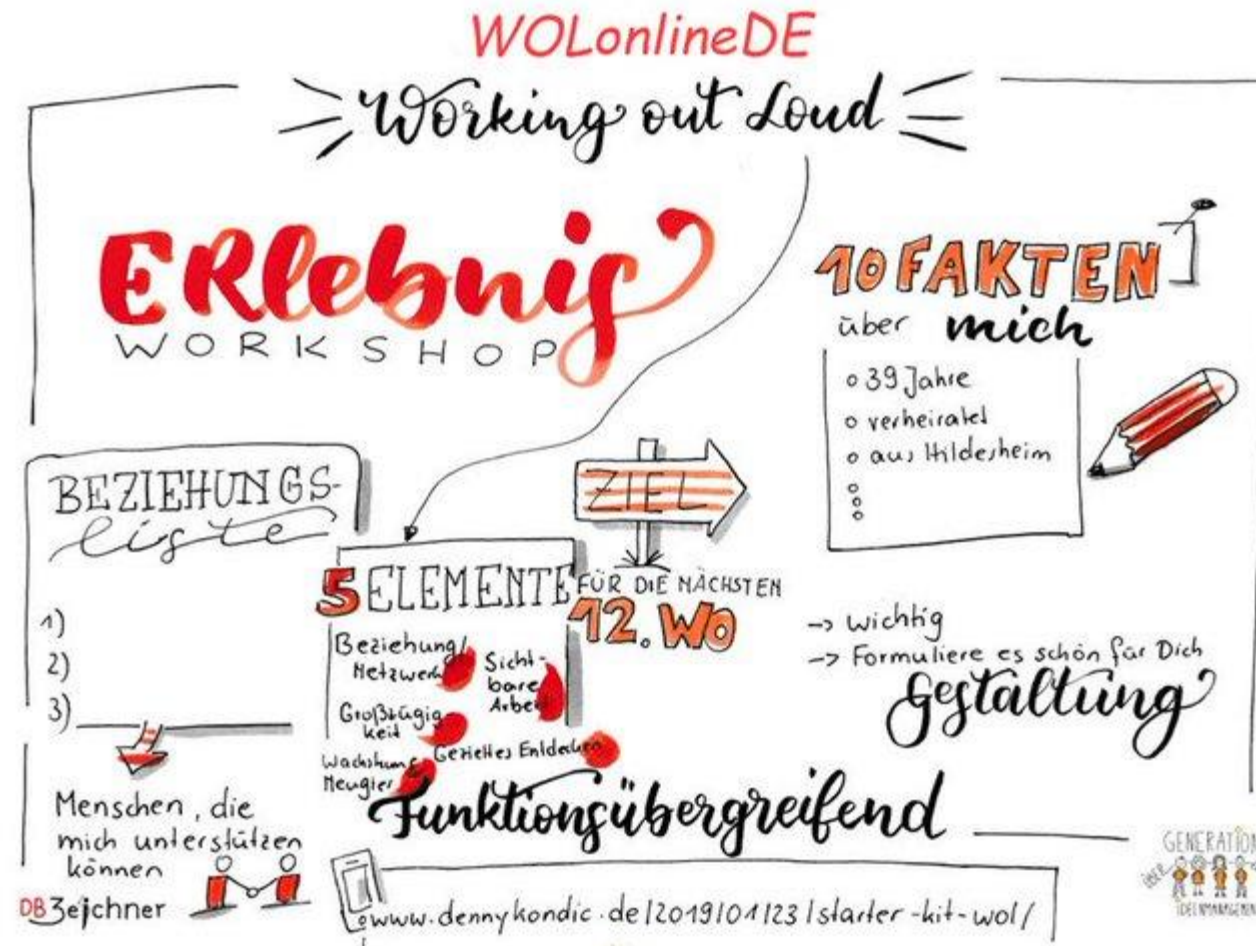 WOLonlineDE
Working out Loud
ERlebnis
WORKSHOP
10 FAKTEN
über mich
39 Jahre
verheiratet
aus Hildesheim
BEZIEHUNGS-
liste
1)
2)
3)
Menschen, die
mich unterstützen
können
ZIEL
FÜR DIE NÄCHSTEN
12. WO
5 ELEMENTE
Beziehung/
Netzwerk
Sicht-
bare
Arbeit
Großzügig
keit
Gezieltes Entdecken
Wachstum
Neugier
-> wichtig
-> Formuliere es schön für Dich
Gestaltung
Funktionsübergreifend
www.dennykondic.de/2019/01/23/starter-kit-wol/
DB Zeichner
GENERATION
über
IDEENMANAGEMEN